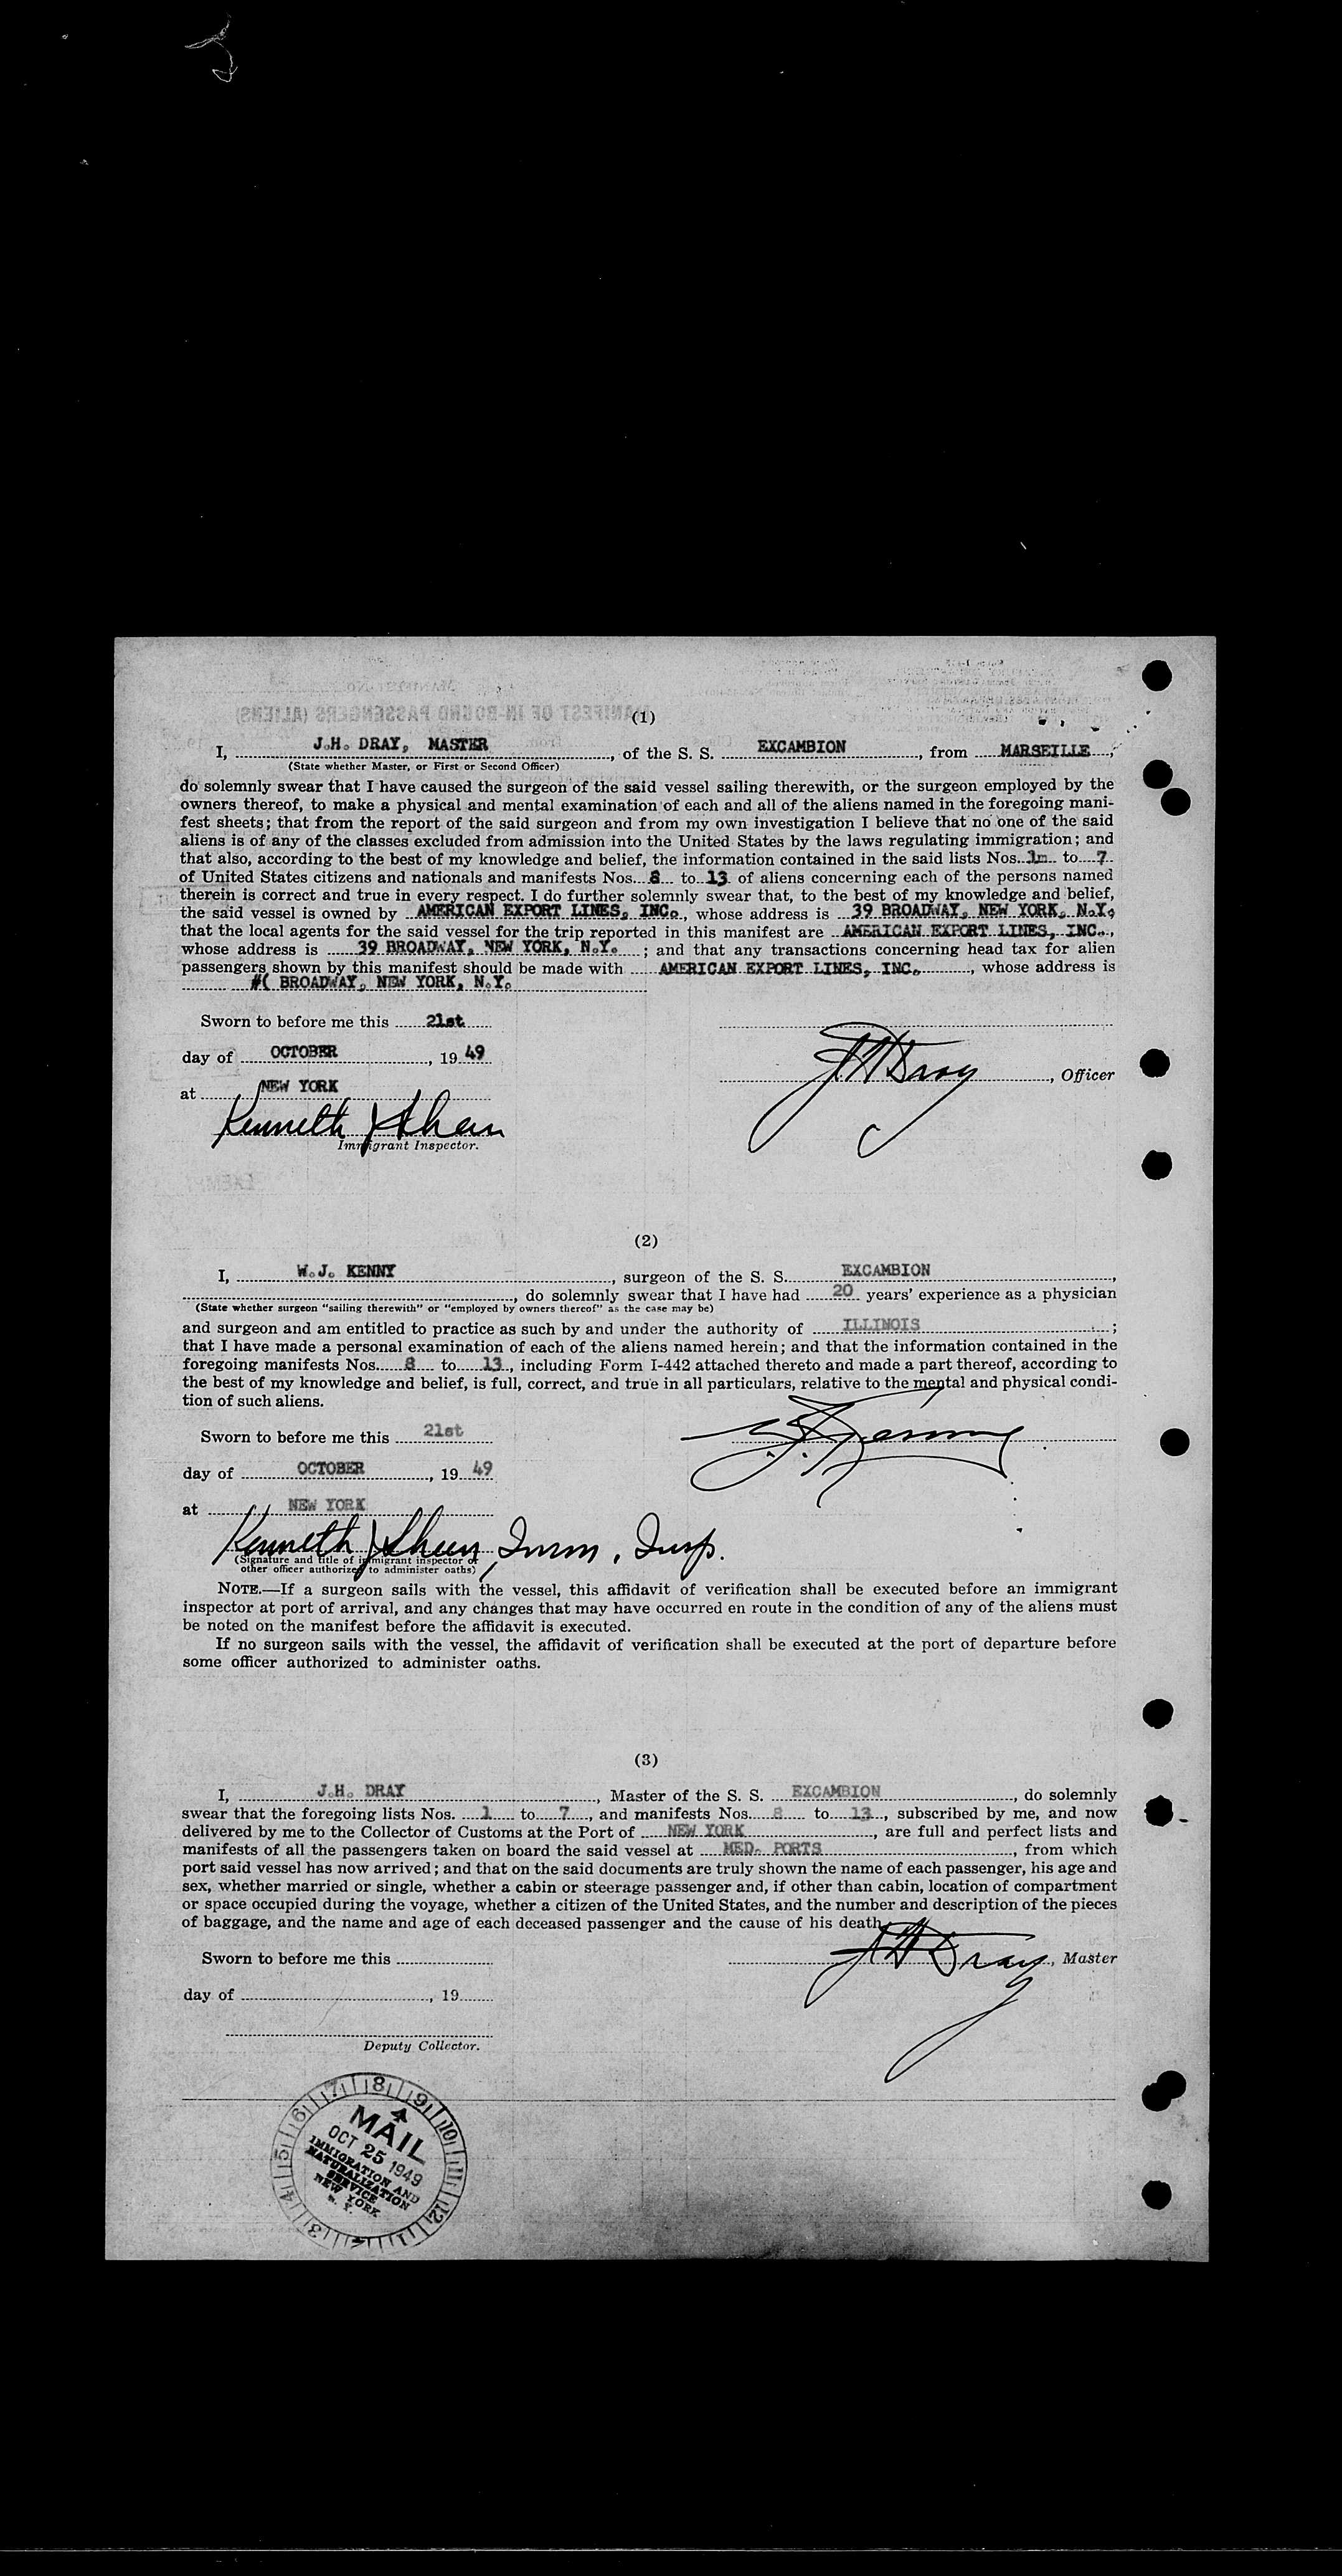 (1)
I, J.H. DRAY, MASTER, of the S. S. EXCAMBION, from MARSEILLE,
(State whether Master, or First or Second Officer)
do solemnly swear that I have caused the surgeon of the said vessel sailing therewith, or the surgeon employed by the
owners thereof, to make a physical and mental examination of each and all of the aliens named in the foregoing mani-
fest sheets; that from the report of the said surgeon and from my own investigation I believe that no one of the said
aliens is of any of the classes excluded from admission into the United States by the laws regulating immigration; and
that also, according to the best of my knowledge and belief, the information contained in the said lists Nos. 1 to 7
of United States citizens and nationals and manifests Nos. 8 to 13 of aliens concerning each of the persons named
therein is correct and true in every respect. I do further solemnly swear that, to the best of my knowledge and belief,
the said vessel is owned by AMERICAN EXPORT LINES, INC., whose address is 39 BROADWAY, NEW YORK, N.Y.
that the local agents for the said vessel for the trip reported in this manifest are AMERICAN EXPORT LINES, INC.,
whose address is 39 BROADWAY, NEW YORK, N.Y. ; and that any transactions concerning head tax for alien
passengers shown by this manifest should be made with AMERICAN EXPORT LINES, INC., whose address is
#( BROADWAY, NEW YORK, N.Y.
Sworn to before me this 21st
day of OCTOBER, 19 49
J H Dray, Officer
at NEW YORK
Kenneth J Shea
Immigrant Inspector.
(2)
I, W.J. KENNY, surgeon of the S. S. EXCAMBION,
, do solemnly swear that I have had 20 years' experience as a physician
(State whether surgeon "sailing therewith" or "employed by owners thereof" as the case may be)
and surgeon and am entitled to practice as such by and under the authority of ILLINOIS ;
that I have made a personal examination of each of the aliens named herein; and that the information contained in the
foregoing manifests Nos. 8 to 13, including Form I-442 attached thereto and made a part thereof, according to
the best of my knowledge and belief, is full, correct, and true in all particulars, relative to the mental and physical condi-
tion of such aliens.
Sworn to before me this 21st
W. J. Kenny
day of OCTOBER, 19 49
at NEW YORK
Kenneth J Shea, Imm. Insp.
(Signature and title of immigrant inspector or
other officer authorized to administer oaths)
NOTE.—If a surgeon sails with the vessel, this affidavit of verification shall be executed before an immigrant
inspector at port of arrival, and any changes that may have occurred en route in the condition of any of the aliens must
be noted on the manifest before the affidavit is executed.
If no surgeon sails with the vessel, the affidavit of verification shall be executed at the port of departure before
some officer authorized to administer oaths.
(3)
I, J.H. DRAY, Master of the S. S. EXCAMBION, do solemnly
swear that the foregoing lists Nos. 1 to 7, and manifests Nos. 8 to 13, subscribed by me, and now
delivered by me to the Collector of Customs at the Port of NEW YORK, are full and perfect lists and
manifests of all the passengers taken on board the said vessel at MED. PORTS, from which
port said vessel has now arrived; and that on the said documents are truly shown the name of each passenger, his age and
sex, whether married or single, whether a cabin or steerage passenger and, if other than cabin, location of compartment
or space occupied during the voyage, whether a citizen of the United States, and the number and description of the pieces
of baggage, and the name and age of each deceased passenger and the cause of his death.
Sworn to before me this
J H Dray, Master
day of , 19
Deputy Collector.
MAIL
OCT 25 1949
IMMIGRATION AND
NATURALIZATION
SERVICE
NEW YORK
N. Y.
1 2 3 4 5 6 7 8 9 10 11 12